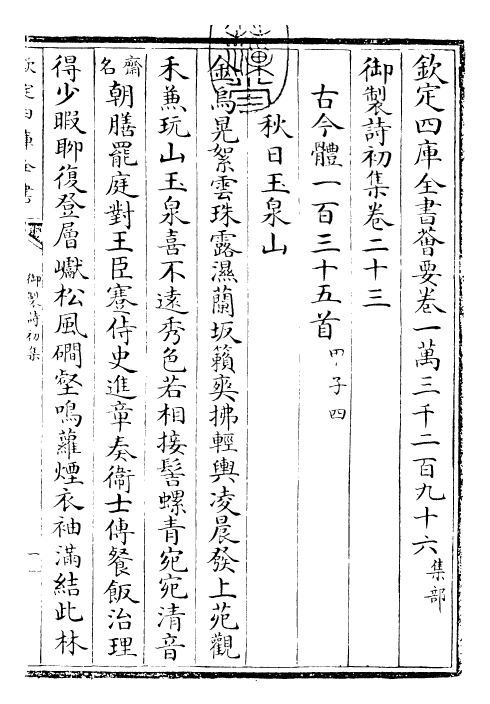 欽定四庫全書薈要卷一萬三千二百九十六集部
御製詩初集卷二十三
古今體一百三十五首甲子四
秋日玉泉山
金烏晃絮雲珠露濕蘭坂籟爽拂輕輿凌晨發上苑觀
禾兼玩山玉泉喜不遠秀色若相接髻螺青宛宛清音
齋名朝膳罷庭對王臣蹇侍史進章奏衛士傳餐飯治理
得少暇聊復登層巘松風磵壑鳴蘿煙衣袖滿結此林
欽定四庫全書
御製詩初集
一